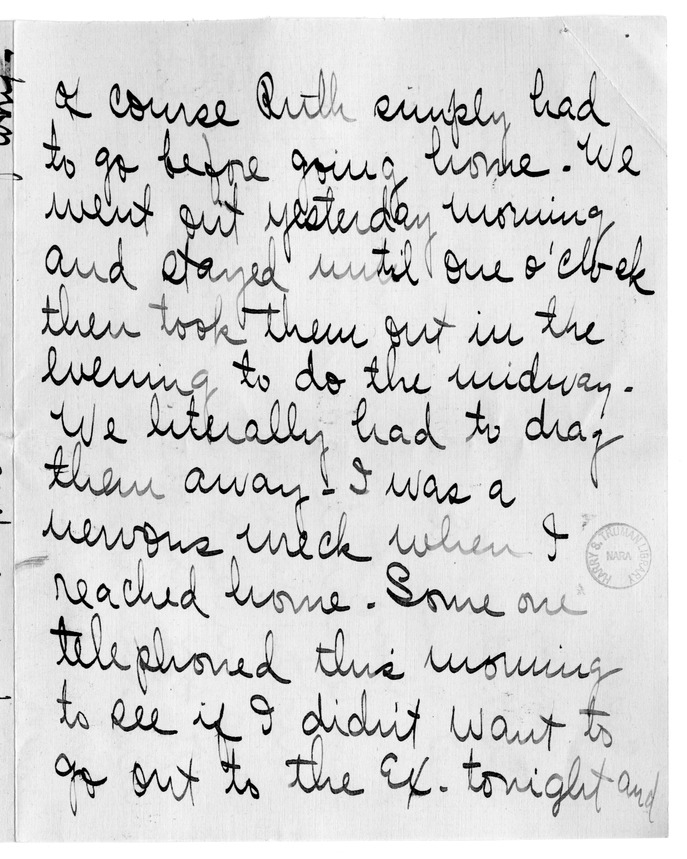 of course Ruth simply had
to go before going home. We
went out yesterday morning
and stayed until one o'clock
then took them out in the
evening to do the midway.
We literally had to drag
them away - I was a
nervous wreck when I
reached home. Some one
telephoned this morning
to see if I didn't want to
go out to the Ex. tonight and
HARRY S. TRUMAN LIBRARY
NARA